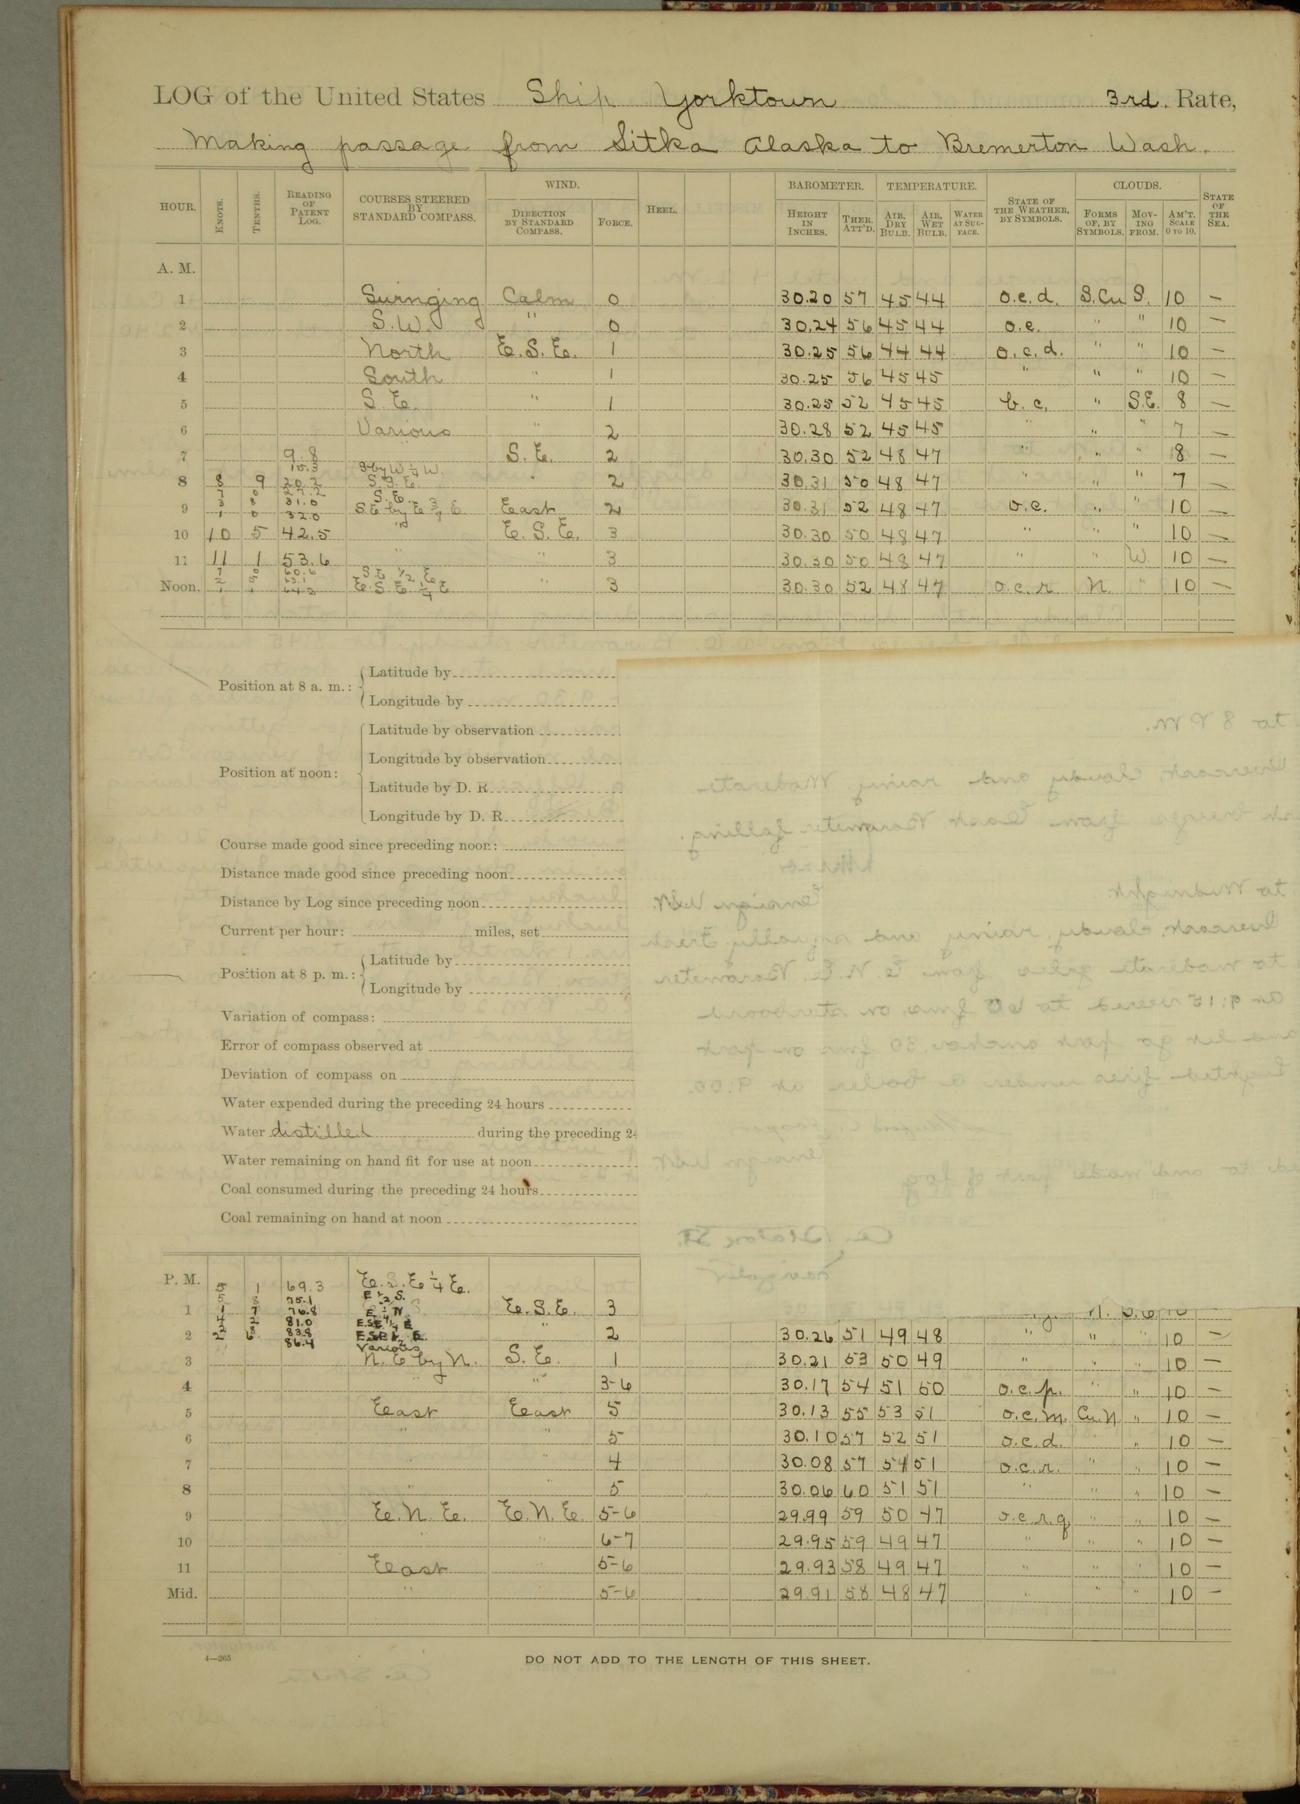 LOG of the United States Ship Yorktown 3rd. Rate,
Making passage from Sitka Alaska to Bremerton Wash.
HOUR. KNOTS. TENTHS. READING OF PATENT LOG. COURSES STEERED BY STANDARD COMPASS. WIND. DIRECTION BY STANDARD COMPASS. FORCE. HEEL. BAROMETER. HEIGHT IN INCHES. THER. ATT'D. TEMPERATURE. AIR, DRY BULB. AIR, WET BULB. WATER AT SURFACE. STATE OF THE WEATHER, BY SYMBOLS. CLOUDS. FORMS OF, BY SYMBOLS. MOVING FROM. AM'T. SCALE 0 TO 10. STATE OF THE SEA.
A. M.
1 Swinging Calm 0 30.20 57 45 44 o.c.d. S.Cu S. 10 —
2 S.W. " 0 30.24 56 45 44 o.c. " " 10 —
3 North E.S.E. 1 30.25 56 44 44 o.c.d. " " 10 —
4 South " 1 30.25 56 45 45 " " " 10 —
5 S.E. " 1 30.25 52 45 45 b.c. " S.E. 8 —
6 Various " 2 30.28 52 45 45 " " " 7 —
7 9.8 S.E. 2 30.30 52 48 47 " " " 8 —
15.3 S by W ½ W.
8 8 9 20.2 S.S.E. " 2 30.31 50 48 47 " " " 7 —
7 0 27.2 S.E.
3 8 31.0
9 1 0 32.0 S.E by E ¾ E East 2 30.31 52 48 47 o.c. " " 10 —
10 10 5 42.5 " E.S.E. 3 30.30 50 48 47 " " " 10 —
11 11 1 53.6 " " 3 30.30 50 48 47 " " W. 10 —
7 0 60.6 S.E. ½ E
2 5 63.1
Noon. E.S.E. ¼ E " 3 30.30 52 48 47 o.c.r N. " 10 —
Position at 8 a. m.: Latitude by
Longitude by
Position at noon: Latitude by observation
Longitude by observation
Latitude by D. R.
Longitude by D. R.
Course made good since preceding noon:
Distance made good since preceding noon
Distance by Log since preceding noon
Current per hour: miles, set
Position at 8 p. m.: Latitude by
Longitude by
Variation of compass:
Error of compass observed at
Deviation of compass on
Water expended during the preceding 24 hours
Water distilled during the preceding 2
Water remaining on hand fit for use at noon
Coal consumed during the preceding 24 hours
Coal remaining on hand at noon
P. M. 5 1 69.3 E.S.E ¼ E.
5 8 75.1 E ½ S.
1 1 7 76.8 E.S.E. 3 10 —
4 2 81.0
2 2 8 83.8 " 2 30.26 51 49 48 " " " 10 —
2 6 86.4 Various
3 N.E by N. S.E. 1 30.21 53 50 49 " " " 10 —
4 " " 3-6 30.17 54 51 50 o.c.p. " " 10 —
5 East East 5 30.13 55 53 51 o.c.m. Cu.N " 10 —
6 " " 5 30.10 57 52 51 o.c.d. " 10 —
7 " " 4 30.08 57 54 51 o.c.r. " " 10 —
8 " " 5 30.06 60 51 51 " " " 10 —
9 E.N.E. E.N.E. 5-6 29.99 59 50 47 o.c.r.q " " 10 —
10 " " 6-7 29.95 59 49 47 " " " 10 —
11 East " 5-6 29.93 58 49 47 " " " 10 —
Mid. " 5-6 29.91 58 48 47 " " " 10 —
4—265
DO NOT ADD TO THE LENGTH OF THIS SHEET.